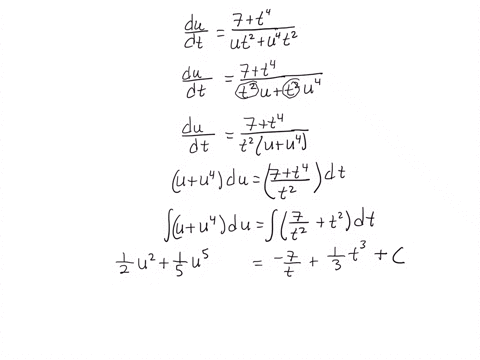 du/dt = (7+t⁴)/(ut²+u⁴t²)
du/dt = (7+t⁴)/(t²u+t²u⁴)
du/dt = (7+t⁴)/(t²(u+u⁴))
(u+u⁴)du = ((7+t⁴)/t²)dt
∫(u+u⁴)du = ∫(7/t² + t²)dt
1/2 u² + 1/5 u⁵ = -7/t + 1/3 t³ + C